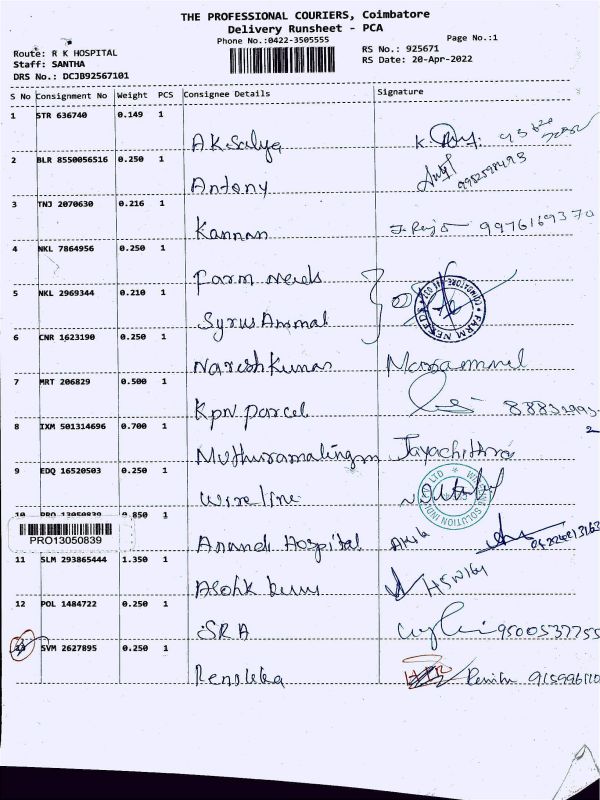 THE PROFESSIONAL COURIERS, Coimbatore
Delivery Runsheet - PCA
Phone No.:0422-3505555
Page No.:1
Route: R K HOSPITAL
Staff: SANTHA
DRS No.: DCJB92567101
RS No.: 925671
RS Date: 20-Apr-2022
S No Consignment No Weight PCS Consignee Details Signature
1 STR 636740 0.149 1
A.K. Salya
2 BLR 8550056516 0.250 1
Antony
3 TNJ 2070630 0.216 1
Kannan 9976169370
4 NKL 7864956 0.250 1
Farm needs
5 NKL 2969344 0.210 1
Syrus Ammal
FARM NEEDS
6 CNR 1623190 0.250 1
Nareshkumar
7 MRT 206829 0.500 1
Kpn parcel
8 IXM 501314696 0.700 1
Muthuramalingm Jayachithra
9 EDQ 16520503 0.250 1
wireline
10 PRO 13050839 0.850 1
PRO13050839
Anand Hospital
11 SLM 293865444 1.350 1
12 POL 1484722 0.250 1
SRA 9500537755
13 SVM 2627895 0.250 1